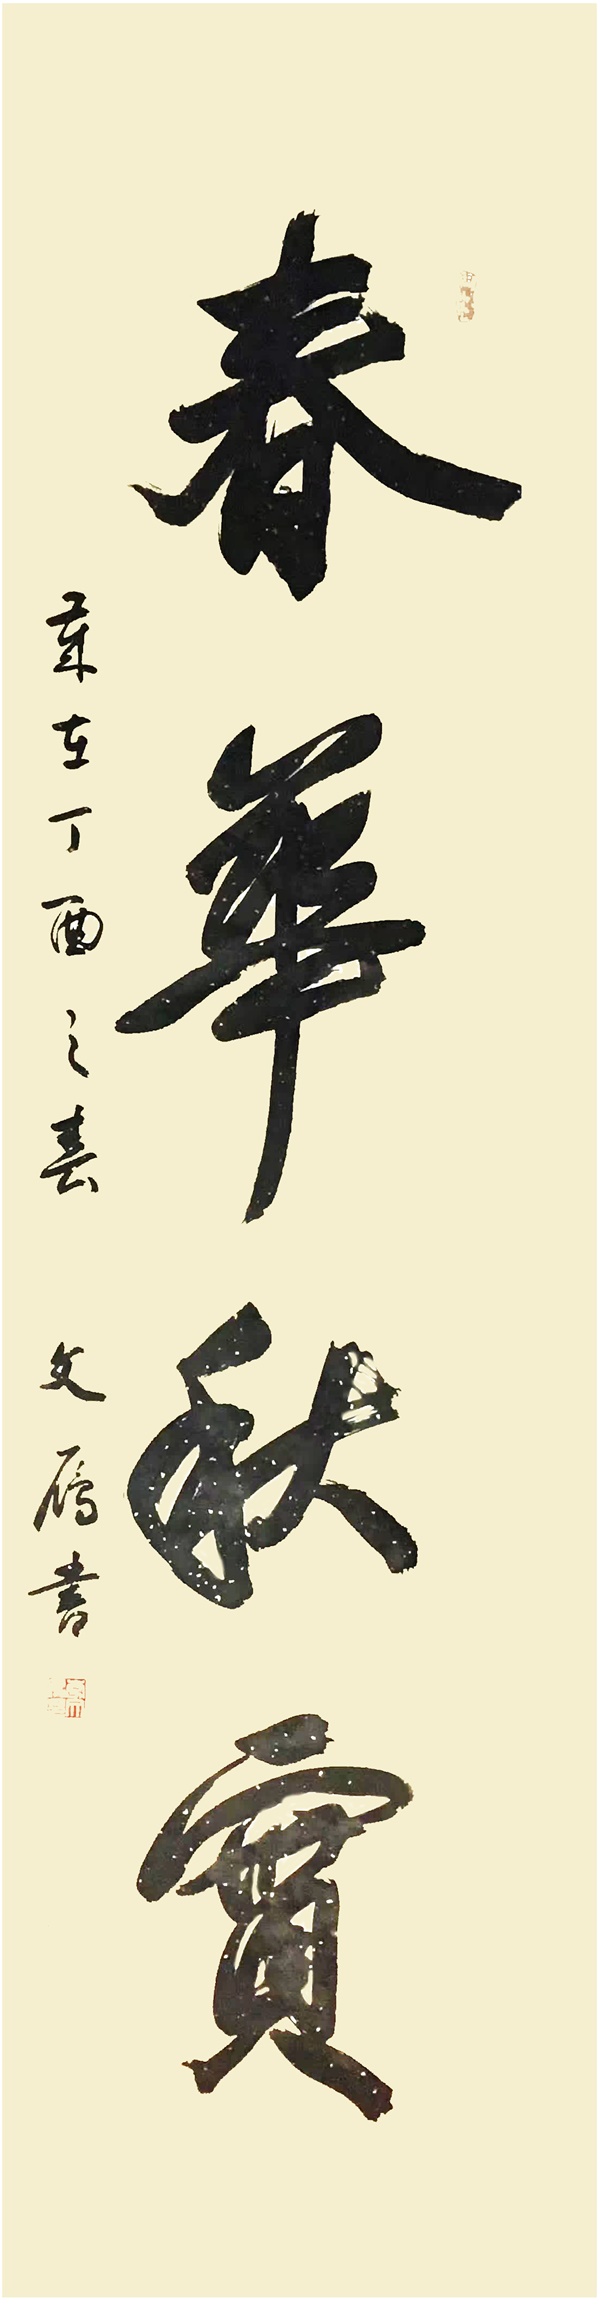 春華秋實
歲在丁酉之春 文雁書